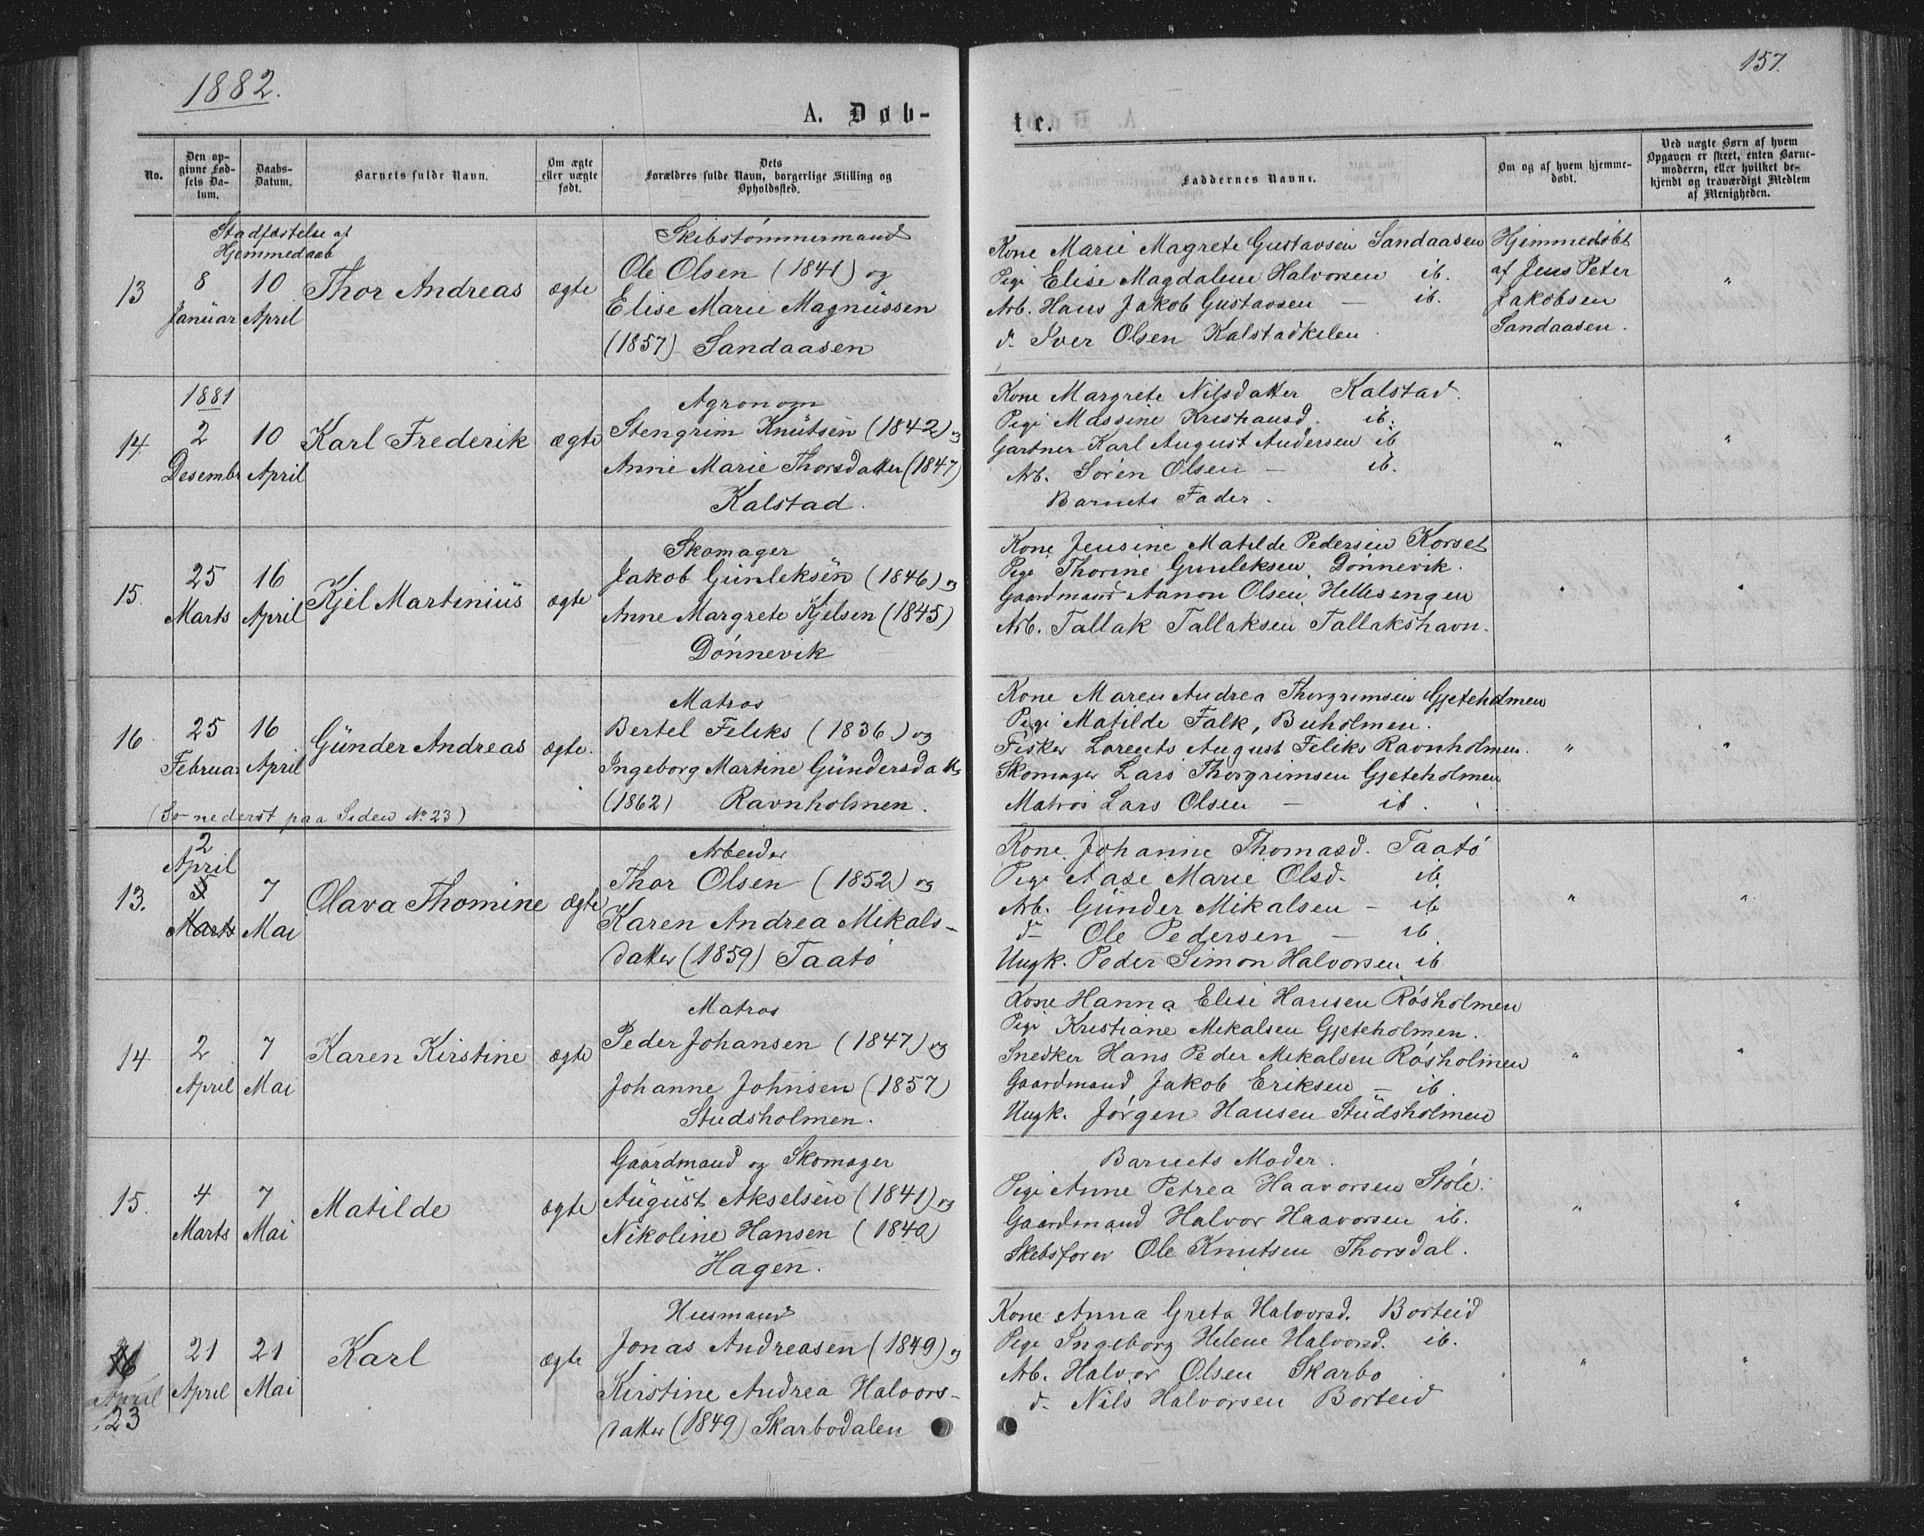 1882.
157.
A. Døb-
te.
No.
Den op-
givne Fød-
sels Da-
tum.
Daabs-
Datum.
Barnets fulde Navn.
Om ægte
eller uægte
født.
Dets
Forældres fulde Navn, borgerlige Stilling og
Opholdssted.
Faddernes Navne.
Om og af hvem hjemme-
døbt.
Ved uægte Børn af hvem
Opgaven er skeet, enten Barne-
moderen, eller hvilket be-
kjendt og troværdigt Medlem
af Menigheden.
Stadfæstelse af
Hjemmedaab
13
8
Januar
10
April
Thor Andreas
ægte
Skibstømmermand
Ole Olsen (1841) og
Elise Marie Magnussen
(1857) Sandaasen
Kone Marie Magrete Gustavsen Sandaasen
Pigi Elise Magdalene Halvorsen ib.
Arb. Hans Jakob Gustavsen — ib.
d. Iver Olsen Kalstadkilen.
Hjemmedøbt
af Jens Peter
Jakobsen
Sandaasen.
"
14.
1881
2
Desembr
10
April
Karl Frederik
ægte
Agronom
Stengrim Knutsen (1842) og
Anne Marie Thorsdatter (1847)
Kalstad.
Kone Margrete Nilsdatter Kalstad.
Pigi Massine Kristiansd. ib.
Gartner Karl August Andersen ib
Arb. Søren Olsen — ib.
Barnets Fader.
"
"
15.
25
Marts
16
April
Kjel Martinius
ægte
Skomager
Jakob Gunleksen (1846) og
Anne Margrete Kjelsen (1845)
Dønnevik
Kone Jensine Matilde Pedersen Korset
Pigi Thorine Gunleksen Dønnevik.
Gaardmand Aanon Olsen Hellesengen
Arb. Tallak Tallaksen Tallakshavn.
"
"
16
25
Februar
16
April
Gunder Andreas
ægte.
Matros
Bertel Feliks (1836) og
Ingeborg Martine Gundersdatter
(1862) Ravnholmen.
Kone Maren Andrea Thorgrimsen Gjeteholmen
Pigi Matilde Falk, Buholmen.
Fisker Lorents August Feliks Ravnholmen.
Skomager Lars Thorgrimsen Gjeteholmen
Matros Lars Olsen — ib.
"
"
(Se nederst paa Siden No 23)
13.
2
April
5
Marts
7
Mai
Olava Thomine
ægte
Arbeider
Thor Olsen (1852) og
Karen Andrea Mikals-
datter (1859) Taatø
Kone Johanne Thomasd. Taatø
Pigi Aase Marie Olsd. ib.
Arb. Gunder Mikalsen — ib
d— Ole Pedersen — ib.
Ungk. Peder Simon Halvorsen ib
"
"
14
2
April
7
Mai
Karen Kirstine
ægte
Matros
Peder Johansen (1847) og
Johanne Johnsen (1857)
Studsholmen.
Kone Hanna Elise Hansen Røsholmen
Pigi Kristiane Mikalsen Gjeteholmen.
Snedker Hans Peder Mikalsen Røsholmen
Gaardmand Jakob Eriksen — ib
Ungk. Jørgen Hansen Studsholmen
"
"
15.
4
Marts
7
Mai
Matilde
ægte
Gaardmand og Skomager
August Akselsen (1841) og
Nikoline Hansen (1840)
Hagen.
Barnets Moder.
Pigi Anne Petrea Haavorsen Støle.
Gaardmand Halvor Haavorsen ib.
Skibsfører Ole Knutsen Thorsdal.
"
"
16
April
23
21
April
21
Mai
Karl
ægte
Husmand
Jonas Andreasen (1849) og
Kirstine Andrea Halvors-
datter (1849) Skarbodalen
Kone Anna Greta Halvorsd. Borteid
Pigi Ingeborg Helene Halvorsd. ib.
Arb. Halvor Olsen Skarbo
d. Nils Halvorsen Borteid
"
"